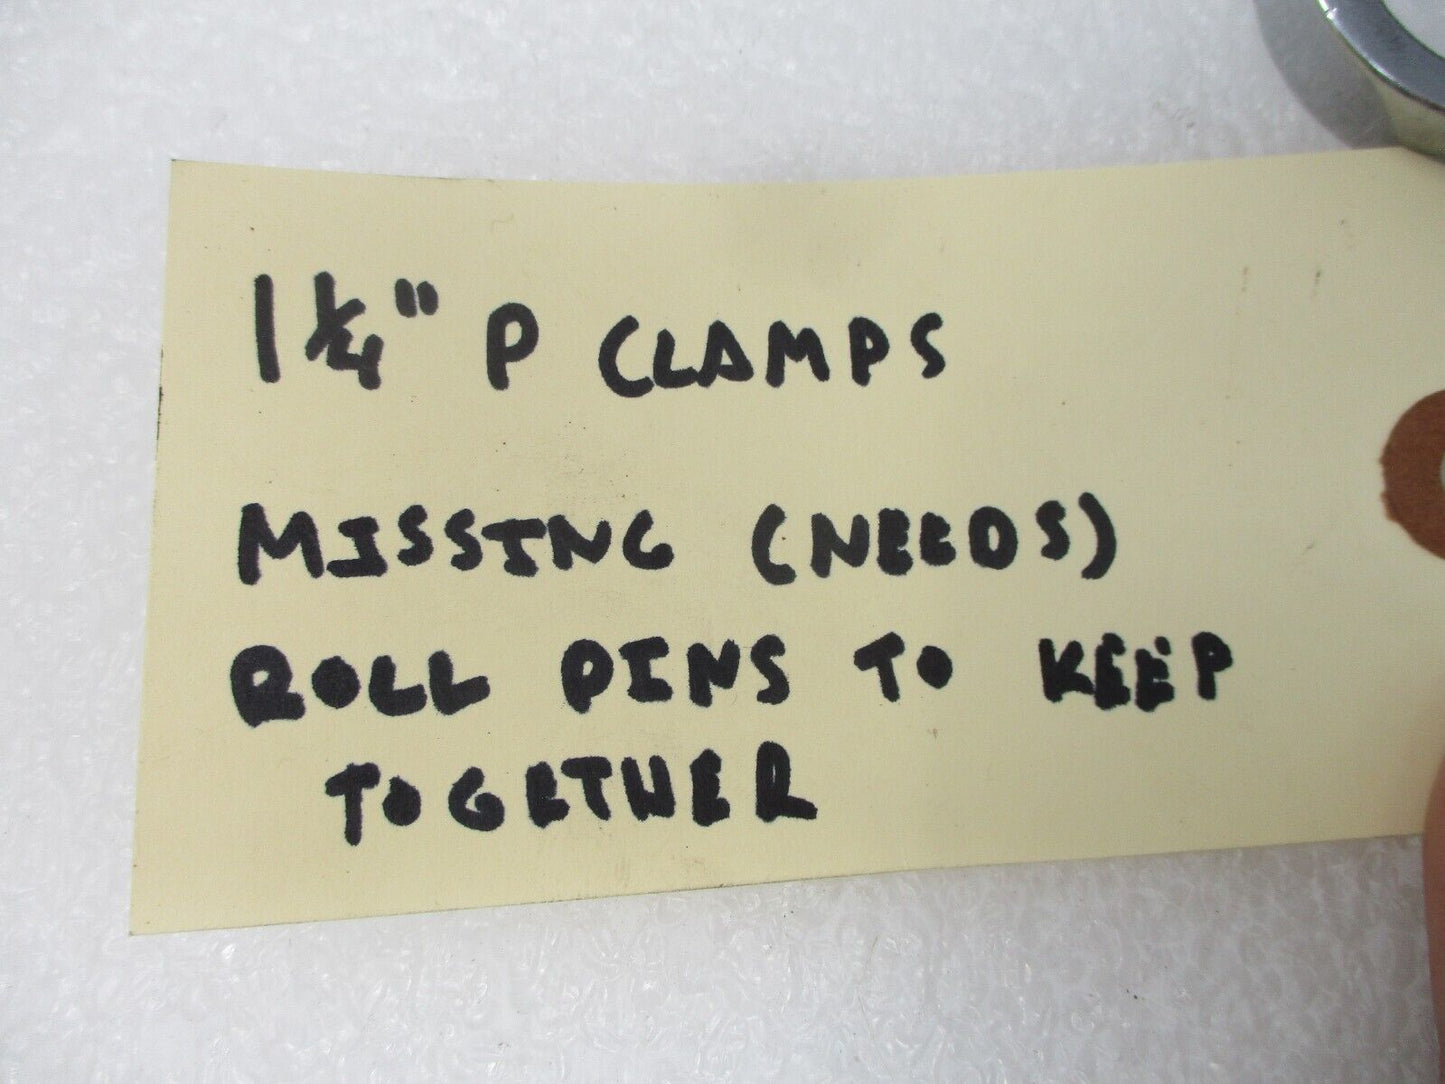 1 1/4" P CLAMPS
MISSING (NEEDS)
ROLL PINS TO KEEP
TOGETHER